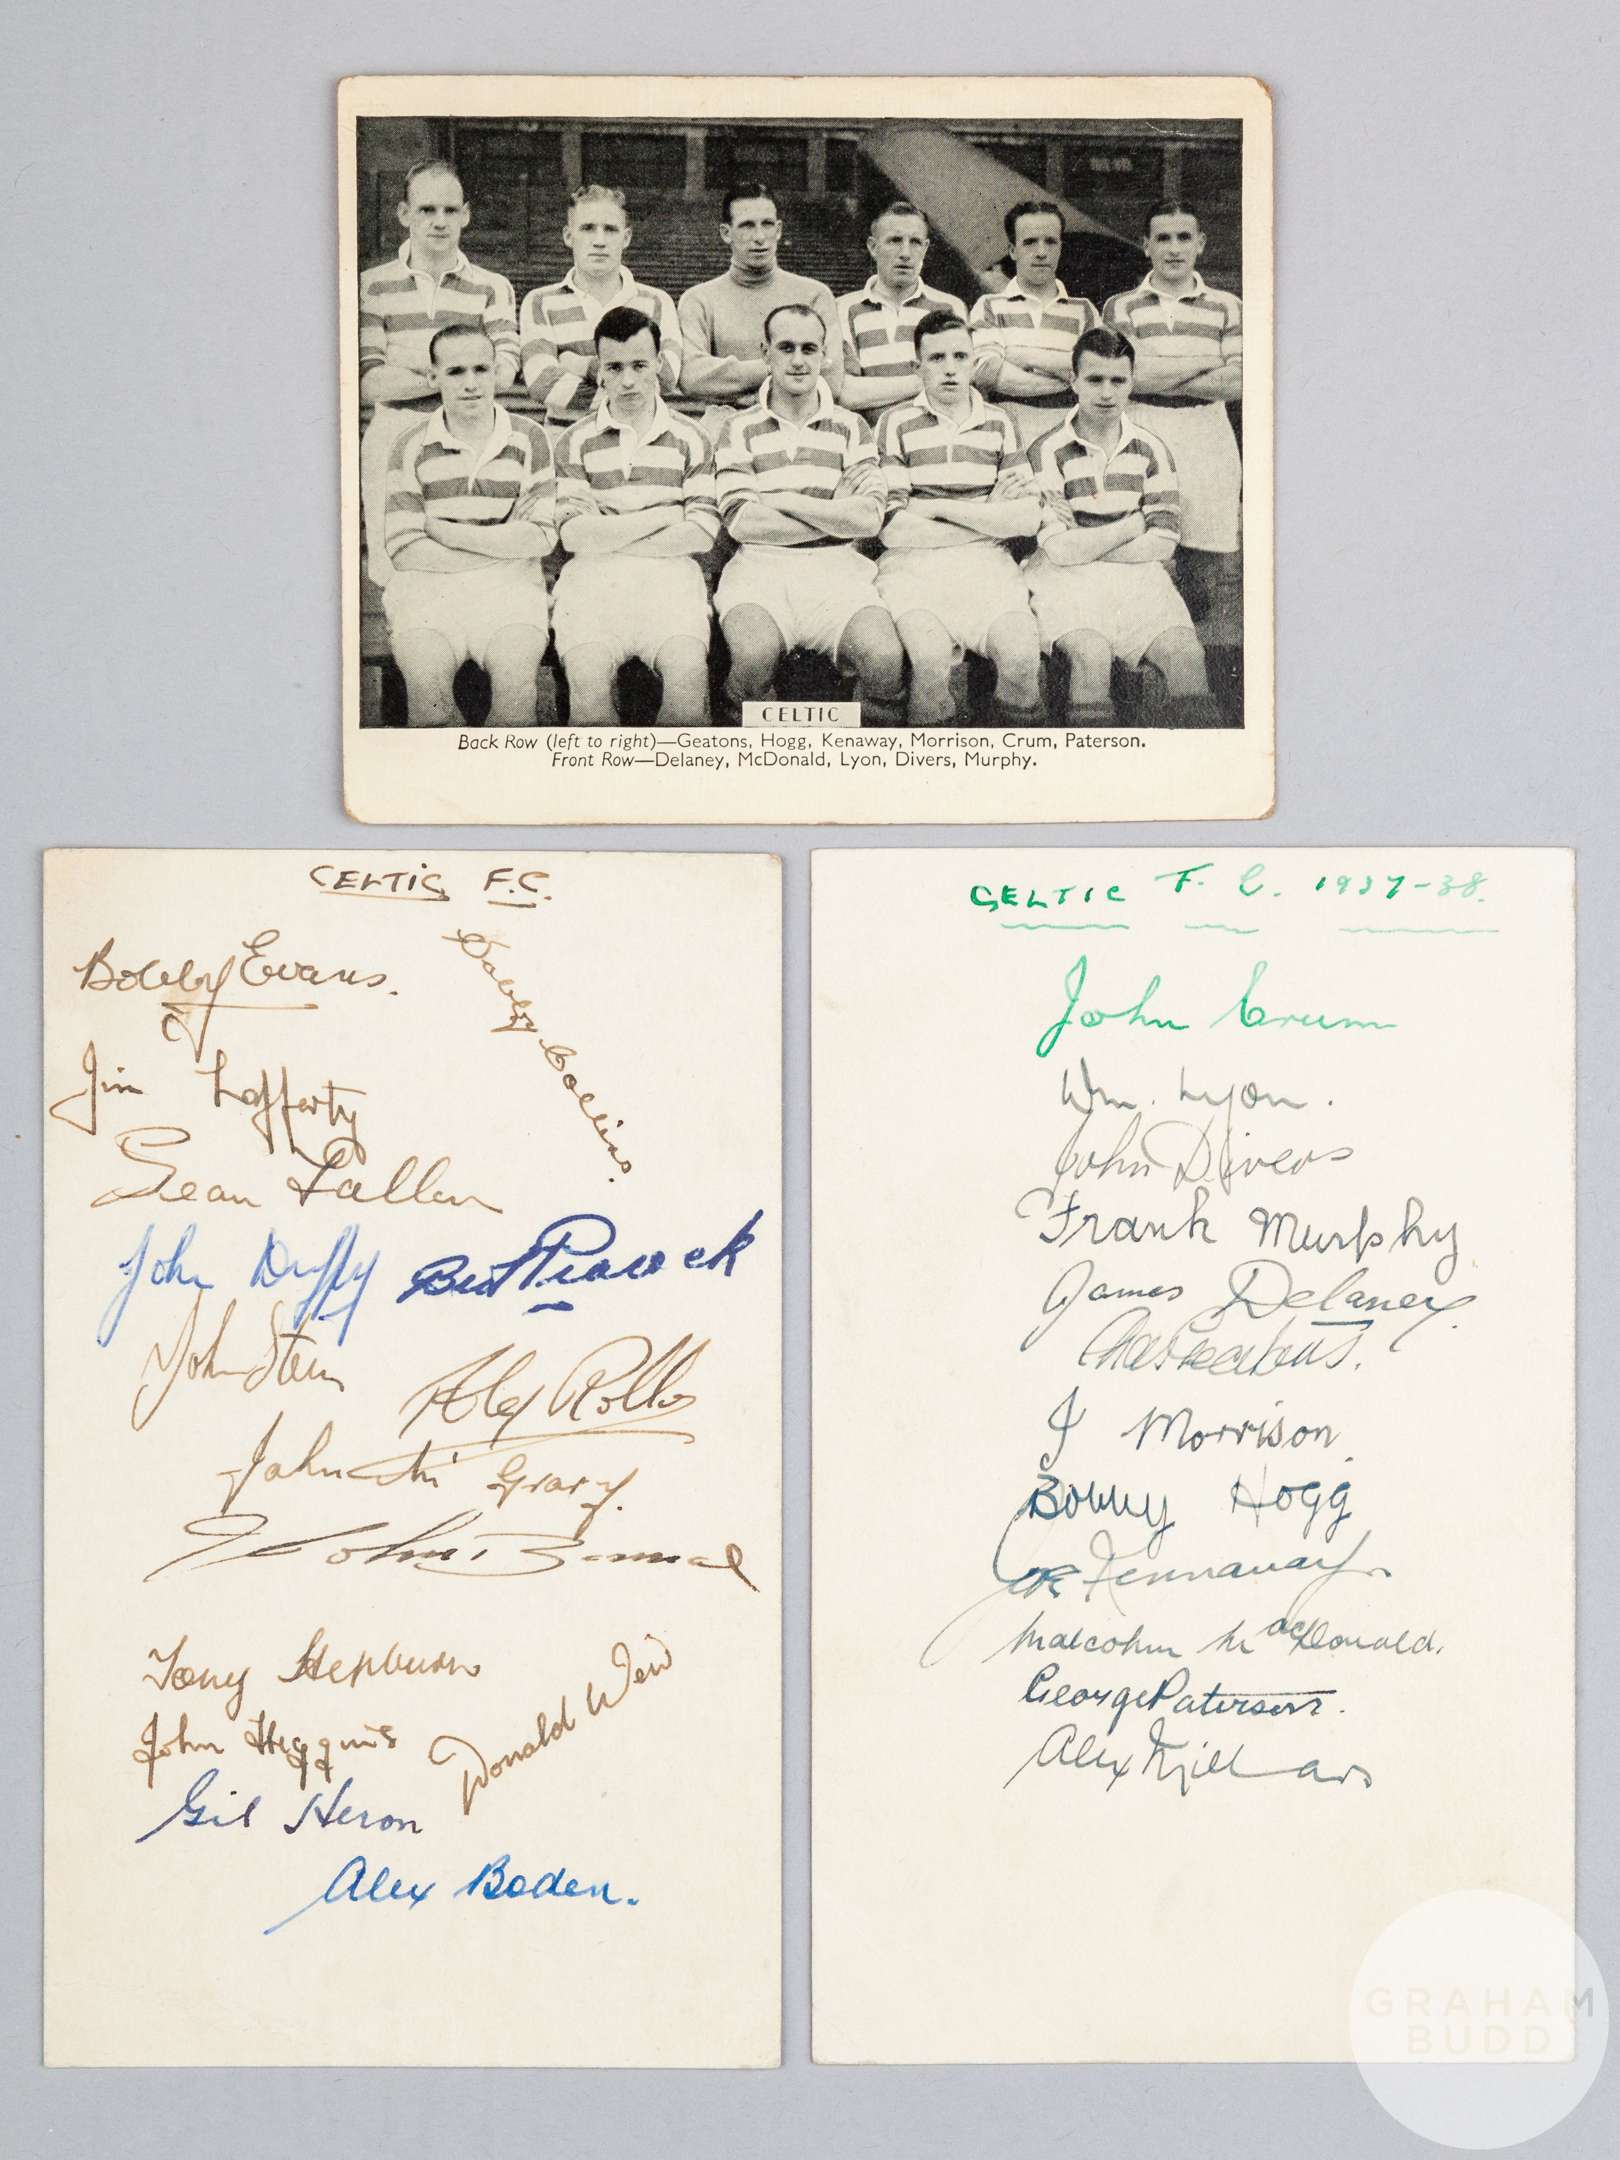 CELTIC
Back Row (left to right)—Geatons, Hogg, Kenaway, Morrison, Crum, Paterson.
Front Row—Delaney, McDonald, Lyon, Divers, Murphy.
CELTIC F.C.
Bobby Evans.
Bobby Collins.
Jim Lafferty
Sean Fallon
John Duffy
Bert Peacock
John Stein
Alex Rollo
John Mc Grory.
John Bonnar
Tony Hepburn
Donald Weir
John Higgins
Gil Heron
Alex Boden.
CELTIC F. C. 1937-38.
John Crum
Wm. Lyon.
John Divers
Frank Murphy
James Delaney.
Chas Geatons.
J Morrison
Bobby Hogg
Joe Kennaway.
Malcolm MacDonald.
George Paterson.
Alex
GRAHAM
BUDD